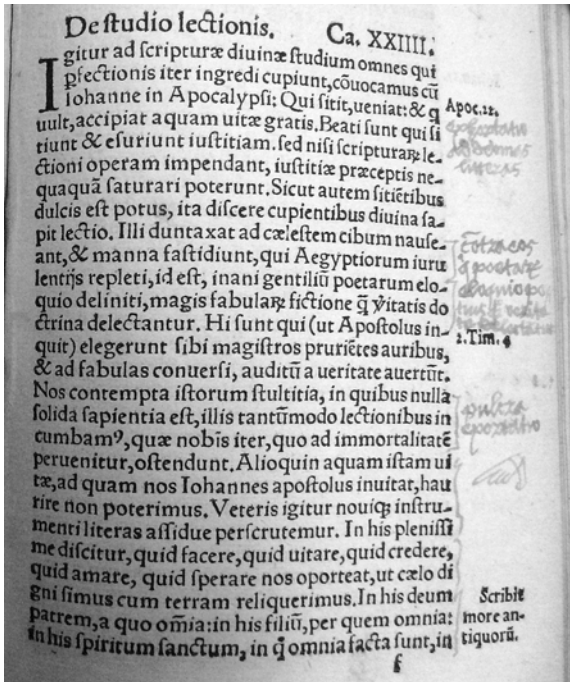 De studio lectionis. Ca. XXIIII.
Igitur ad scripturæ diuinæ studium omnes qui
ꝑfectionis iter ingredi cupiunt,cōuocamus cū
Iohanne in Apocalypsi: Qui sitit,ueniat:& q
uult,accipiat aquam uitæ gratis.Beati sunt qui si
tiunt & esuriunt iustitiam.sed nisi scripturaꝝ le-
ctioni operam impendant, iustitiæ præceptis ne-
quaquā saturari poterunt.Sicut autem sitiētibus
dulcis est potus, ita discere cupientibus diuina sa-
pit lectio. Illi duntaxat ad cælestem cibum nause-
ant,& manna fastidiunt,qui Aegyptiorum iuru
lentijs repleti,id est, inani gentiliū poetarum elo-
quio deliniti,magis fabulaꝝ fictione q̄ v̄itatis do
ctrina delectantur. Hi sunt qui (ut Apostolus in-
quit) elegerunt sibi magistros pruriētes auribus,
& ad fabulas conuersi, auditū a ueritate auertūt.
Nos contempta istorum stultitia, in quibus nulla
solida sapientia est,illis tantūmodo lectionibus in
cumbamꝰ,quæ nobis iter,quo ad immortalitatē
peruenitur,ostendunt.Alioquin aquam istam ui
tæ,ad quam nos Iohannes apostolus inuitat,hau
rire non poterimus.Veteris igitur nouiqꝫ instru-
menti literas assidue perscrutemur. In his plenissi
me discitur,quid facere,quid uitare,quid credere,
quid amare, quid sperare nos oporteat,ut cælo di
gni simus cum terram reliquerimus.In his deum
patrem,a quo om̄ia:in his filiū,per quem omnia:
in his spiritum sanctum, in q̊ omnia facta sunt,in
f
Apoc.22.
2.Tim.4
Scribit
more an-
tiquorū.